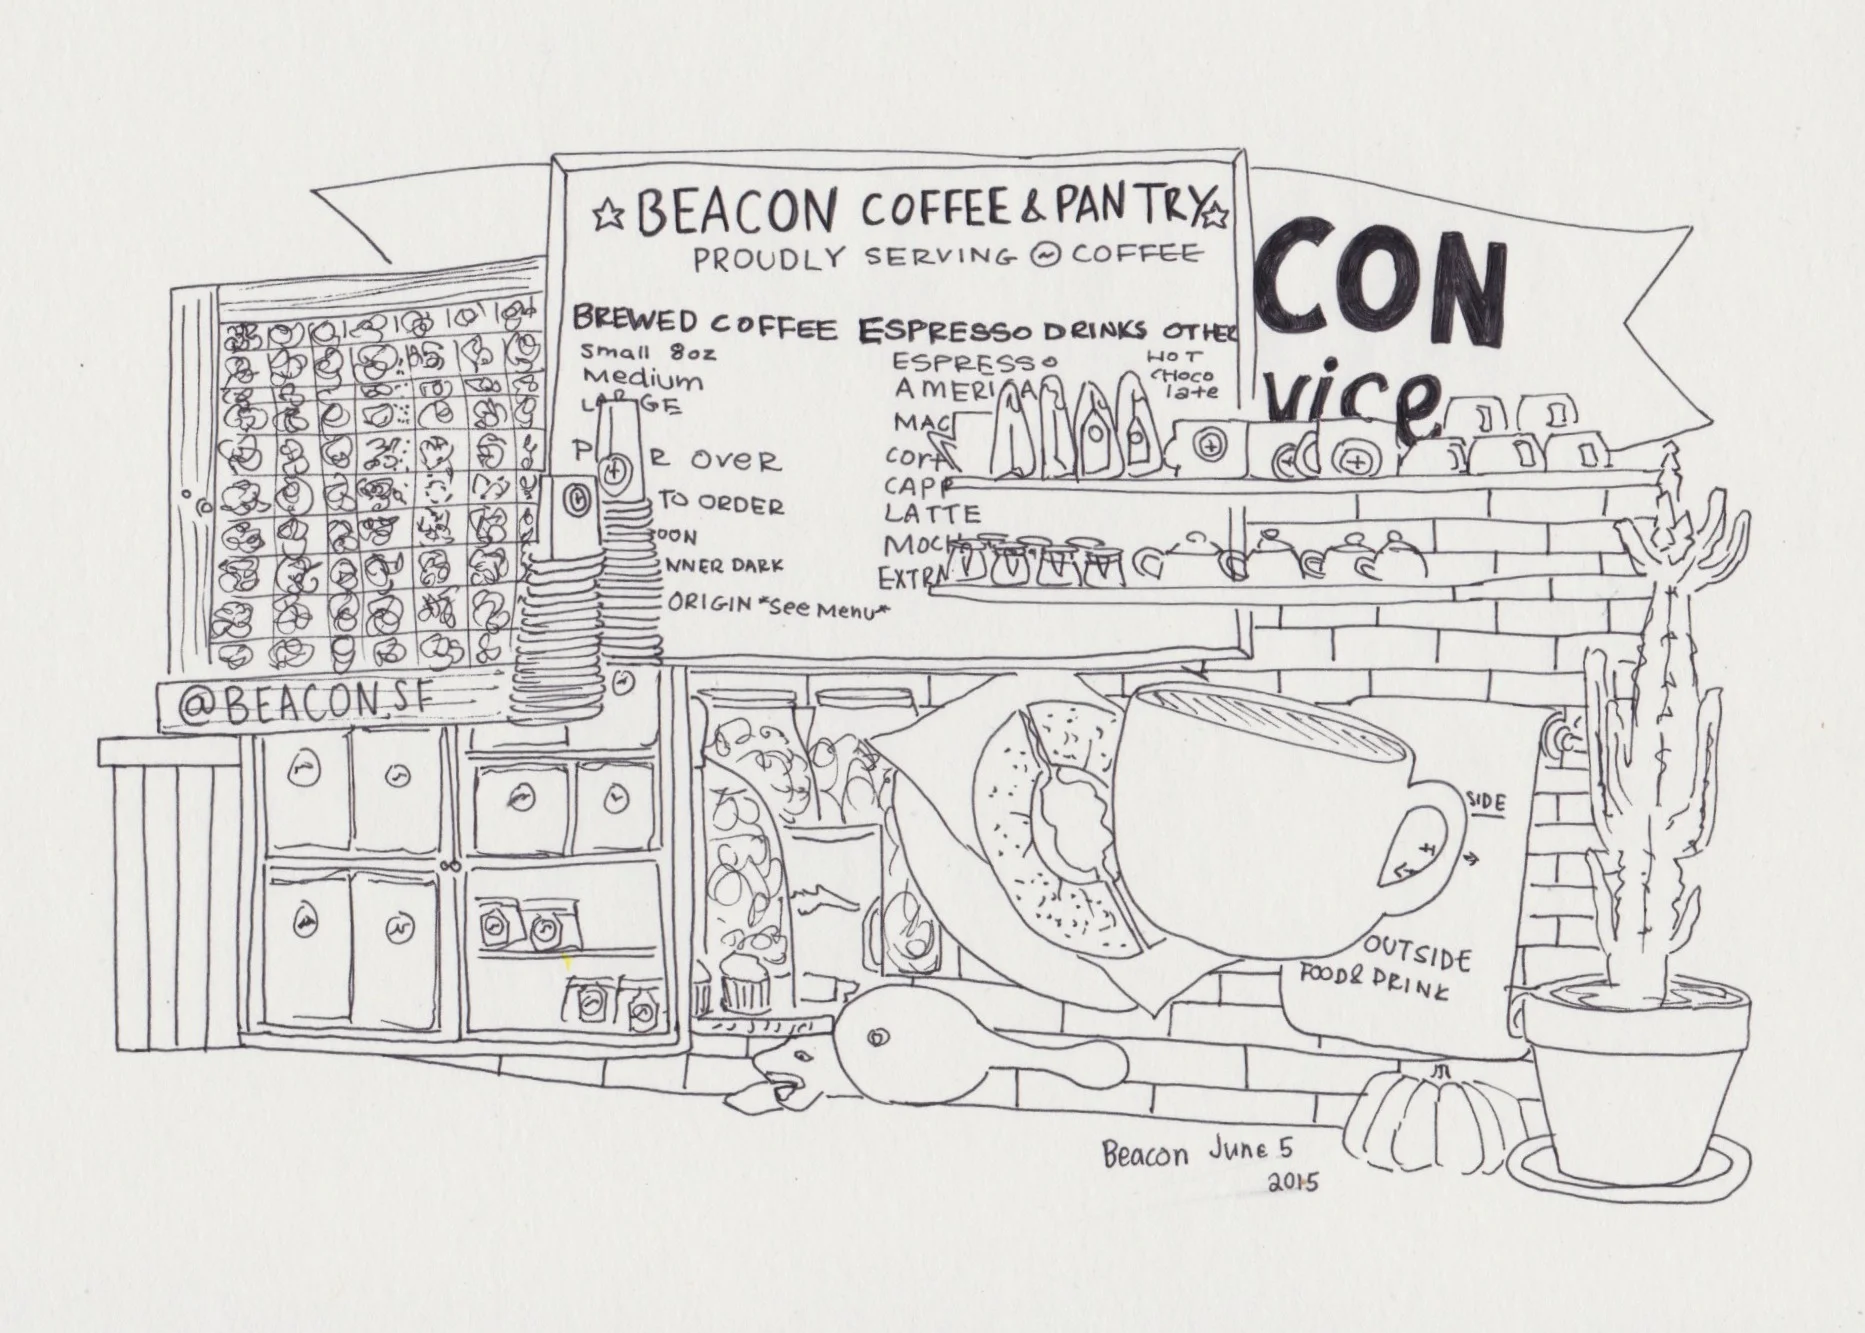 BEACON COFFEE & PANTRY
PROUDLY SERVING COFFEE
BREWED COFFEE
Small 8oz
Medium
LARGE
P R OVER
TO ORDER
OON
NNER DARK
ORIGIN *See Menu*
ESPRESSO DRINKS
ESPRESSO
AMERICA
MAC
CORT
CAPP
LATTE
MOCH
EXTRA
OTHER
HOT
CHOCO
late
CON
vice
@BEACONSF
SIDE
OUTSIDE
FOOD & DRINK
Beacon June 5
2015